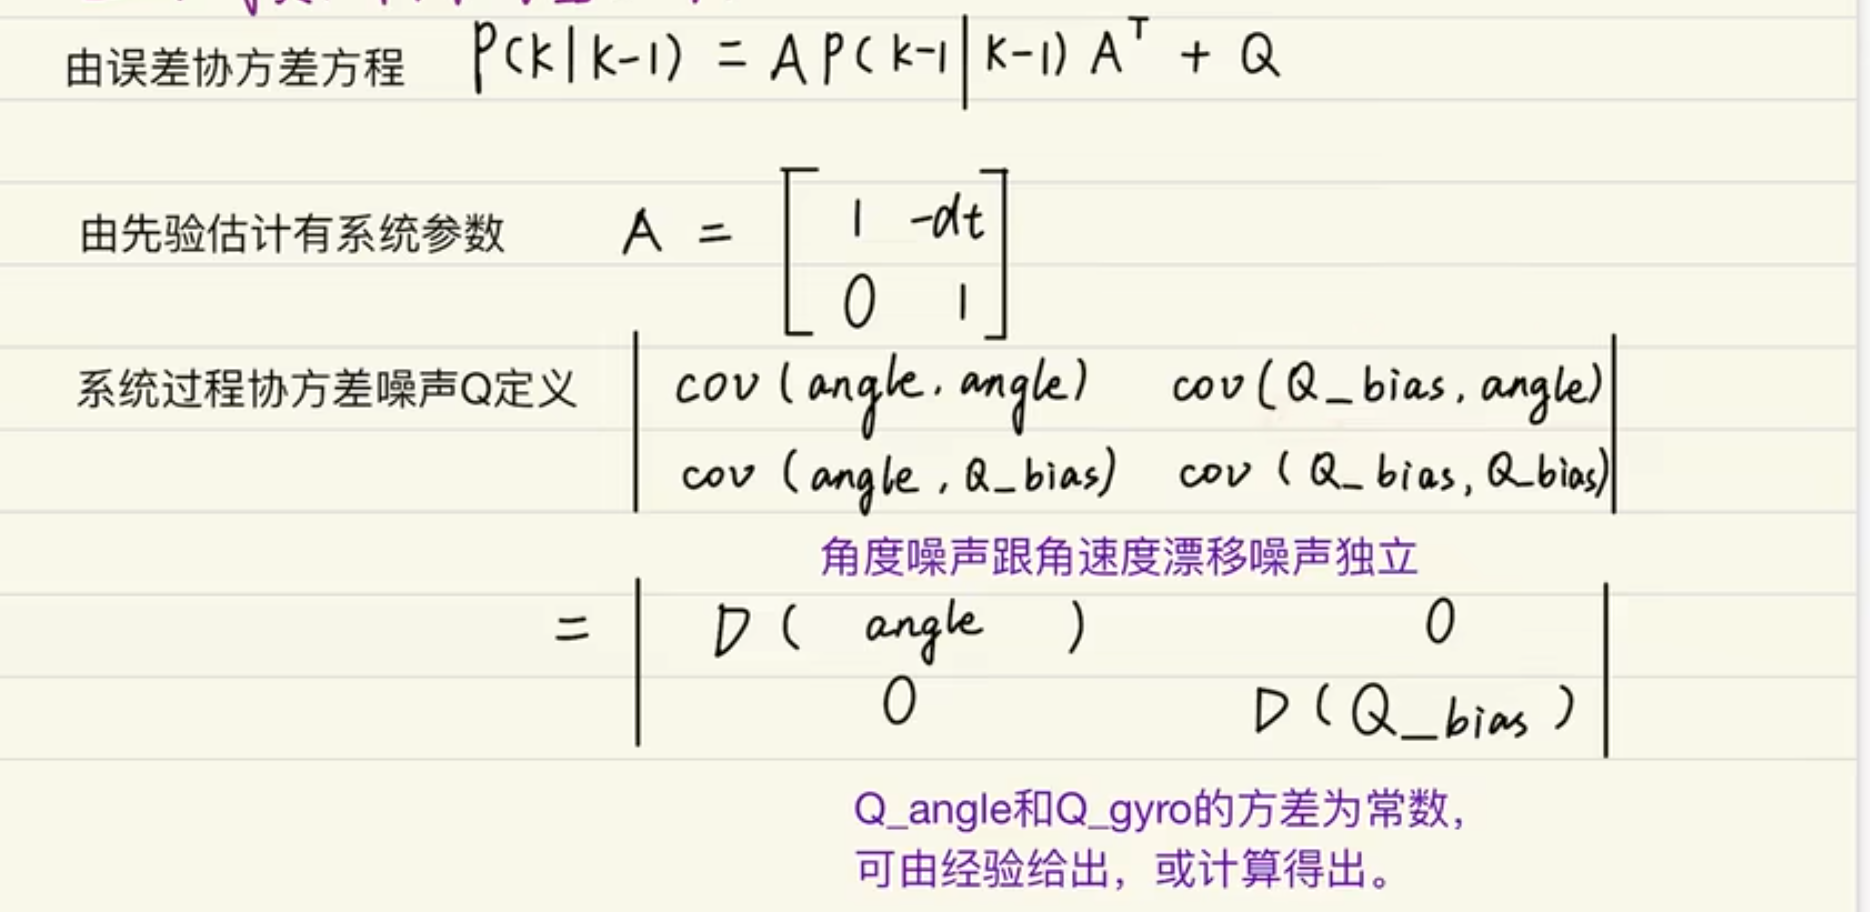 由误差协方差方程 P(k|k-1) = A P(k-1|k-1) Aᵀ + Q
由先验估计有系统参数 A = [ 1 -dt
0 1 ]
系统过程协方差噪声Q定义 | cov(angle, angle) cov(Q_bias, angle) |
| cov(angle, Q_bias) cov(Q_bias, Q_bias) |
角度噪声跟角速度漂移噪声独立
= | D( angle ) 0 |
| 0 D(Q_bias) |
Q_angle和Q_gyro的方差为常数，
可由经验给出，或计算得出。